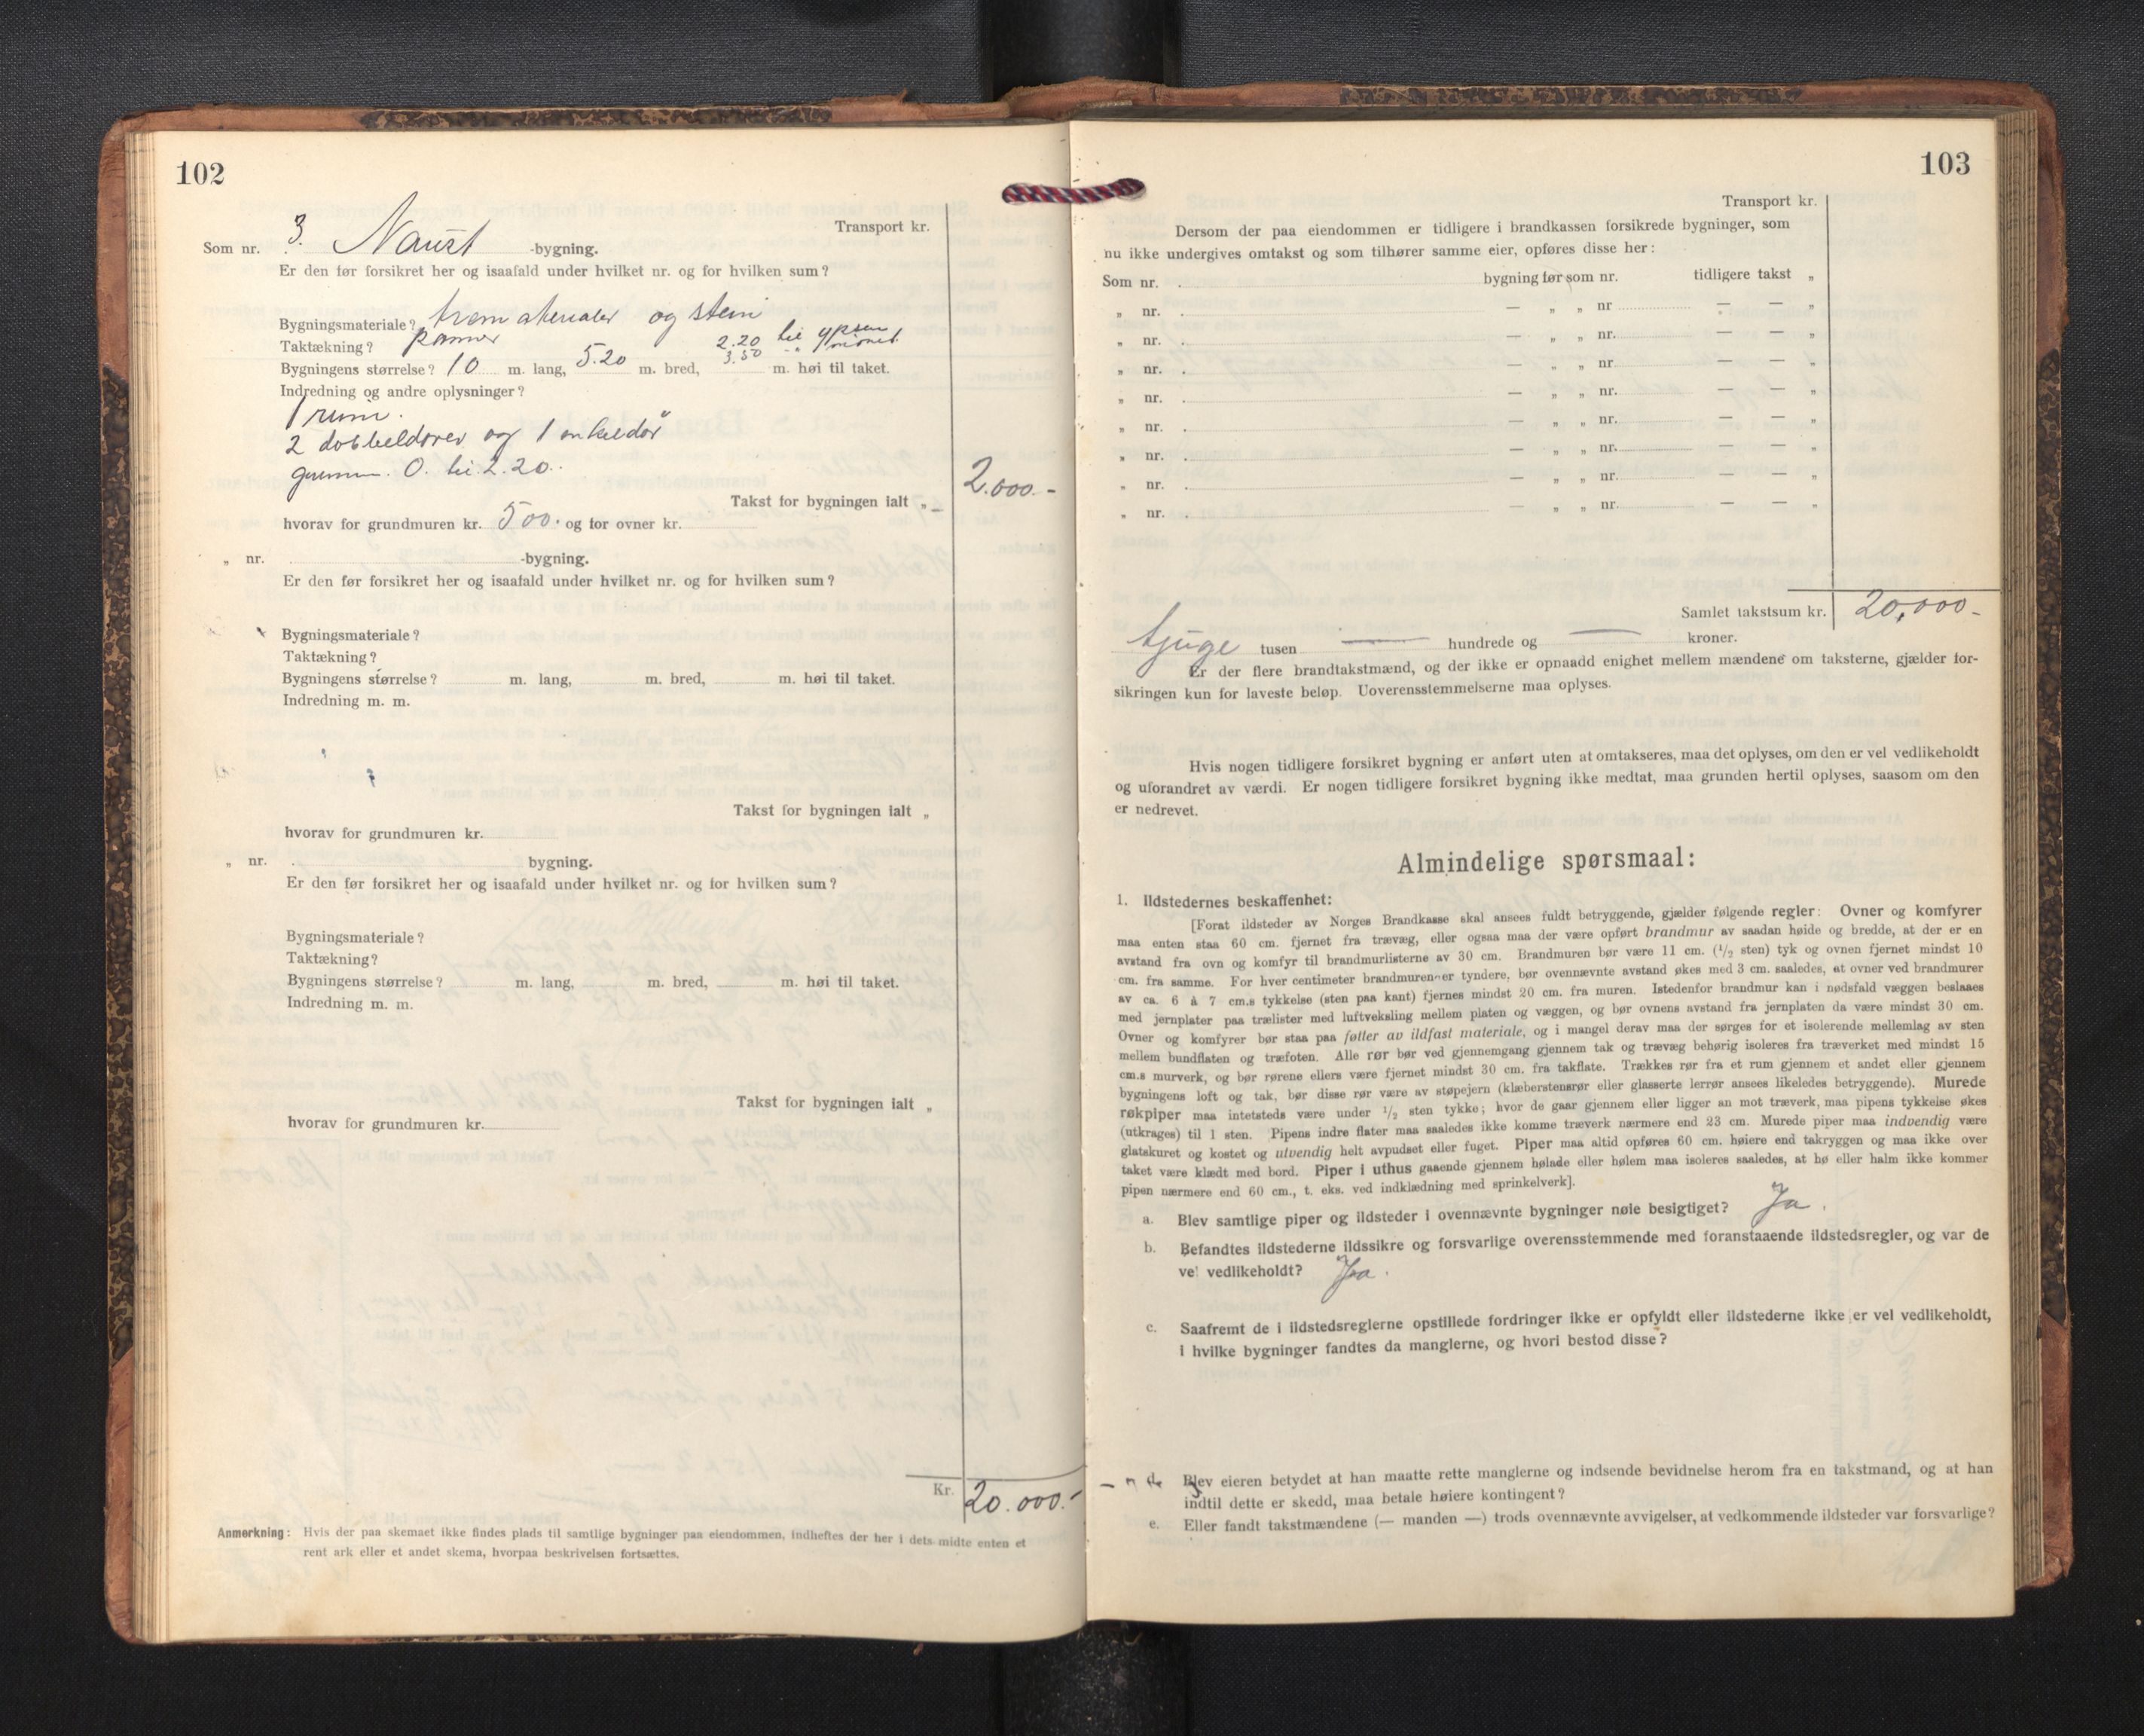 102
Transport kr.
Som nr. 3. Naust -bygning.
Er den før forsikret her og isaafald under hvilket nr. og for hvilken sum?
Bygningsmateriale? trematerialer og stein
Taktækning? panner 2.20 til
Bygningens størrelse? 10 m. lang, 5.20 m. bred, 3.50 m. høi til taket.
Indredning og andre oplysninger?
1 rum.
2 dobbeldører og 1 enkeldør
0. til 2.20.
Takst for bygningen ialt „ 2.000.-
hvorav for grundmuren kr. 500. og for ovner kr.
„ nr. -bygning.
Er den før forsikret her og isaafald under hvilket nr. og for hvilken sum?
Bygningsmateriale?
Taktækning?
Bygningens størrelse? m. lang, m. bred, m. høi til taket.
Indredning m. m.
Takst for bygningen ialt „
hvorav for grundmuren kr.
„ nr. bygning.
Er den før forsikret her og isaafald under hvilket nr. og for hvilken sum?
Bygningsmateriale?
Taktækning?
Bygningens størrelse? m. lang, m. bred, m. høi til taket.
Indredning m. m.
Takst for bygningen ialt „
hvorav for grundmuren kr.
Kr. 20.000.-
Anmerkning: Hvis der paa skemaet ikke findes plads til samtlige bygninger paa eiendommen, indheftes der her i dets midte enten et
rent ark eller et andet skema, hvorpaa beskrivelsen fortsættes.
103
Transport kr.
Dersom der paa eiendommen er tidligere i brandkassen forsikrede bygninger, som
nu ikke undergives omtakst og som tilhører samme eier, opføres disse her:
Som nr. bygning før som nr. tidligere takst „
„ nr. — „ „ nr — — „
„ nr. — „ „ nr. — — „
„ nr. — „ „ nr. — — „
„ nr. — „ „ nr. — — „
„ nr. — „ „ nr. — — „
„ nr. — „ „ nr. — — „
„ nr. — „ „ nr. — — „
„ nr. — „ „ nr. — — „
Samlet takstsum kr. 20.000-
tjuge tusen — hundrede og — kroner.
Er der flere brandtakstmænd, og der ikke er opnaadd enighet mellem mændene om taksterne, gjælder for-
sikringen kun for laveste beløp. Uoverensstemmelserne maa oplyses.
Hvis nogen tidligere forsikret bygning er anført uten at omtakseres, maa det oplyses, om den er vel vedlikeholdt
og uforandret av værdi. Er nogen tidligere forsikret bygning ikke medtat, maa grunden hertil oplyses, saasom om den
er nedrevet.
Almindelige spørsmaal:
1. Ildstedernes beskaffenhet:
[Forat ildsteder av Norges Brandkasse skal ansees fuldt betryggende, gjælder følgende regler: Ovner og komfyrer
maa enten staa 60 cm. fjernet fra trævæg, eller ogsaa maa der være opført brandmur av saadan høide og bredde, at der er en
avstand fra ovn og komfyr til brandmurlisterne av 30 cm. Brandmuren bør være 11 cm. (1/2 sten) tyk og ovnen fjernet mindst 10
cm. fra samme. For hver centimeter brandmuren er tyndere, bør ovennævnte avstand økes med 3 cm. saaledes, at ovner ved brandmurer
av ca. 6 à 7 cm.s tykkelse (sten paa kant) fjernes mindst 20 cm. fra muren. Istedenfor brandmur kan i nødsfald væggen beslaaes
med jernplater paa trælister med luftveksling mellem platen og væggen, og bør ovnens avstand fra jernplaten da være mindst 30 cm.
Ovner og komfyrer bør staa paa føtter av ildfast materiale, og i mangel derav maa der sørges for et isolerende mellemlag av sten
mellem bundflaten og træfoten. Alle rør bør ved gjennemgang gjennem tak og trævæg behørig isoleres fra træverket med mindst 15
cm.s murverk, og bør rørene ellers være fjernet mindst 30 cm. fra takflate. Trækkes rør fra et rum gjennem et andet eller gjennem
bygningens loft og tak, bør disse rør være av støpejern (klæberstensrør eller glasserte lerrør ansees likeledes betryggende). Murede
røkpiper maa intetsteds være under 1/2 sten tykke; hvor de gaar gjennem eller ligger an mot træverk, maa pipens tykkelse økes
(utkrages) til 1 sten. Pipens indre flater maa saaledes ikke komme træverk nærmere end 23 cm. Murede piper maa indvendig være
glatskuret og kostet og utvendig helt avpudset eller fuget. Piper maa altid opføres 60 cm. høiere end takryggen og maa ikke over
taket være klædt med bord. Piper i uthus gaaende gjennem hølade eller hølem maa isoleres saaledes, at hø eller halm ikke kommer
pipen nærmere end 60 cm., t. eks. ved indklædning med sprinkelverk].
a. Blev samtlige piper og ildsteder i ovennævnte bygninger nøie besigtiget? Ja.
b. Befandtes ildstederne ildssikre og forsvarlige overensstemmende med foranstaaende ildstedsregler, og var de
vel vedlikeholdt? Ja.
c. Saafremt de i ildstedsreglerne opstillede fordringer ikke er opfyldt eller ildstederne ikke er vel vedlikeholdt,
i hvilke bygninger fandtes da manglerne, og hvori bestod disse?
d. Blev eieren betydet at han maatte rette manglerne og indsende bevidnelse herom fra en takstmand, og at han
indtil dette er skedd, maa betale høiere kontingent?
e. Eller fandt takstmændene (— manden —) trods ovennævnte avvigelser, at vedkommende ildsteder var forsvarlige?